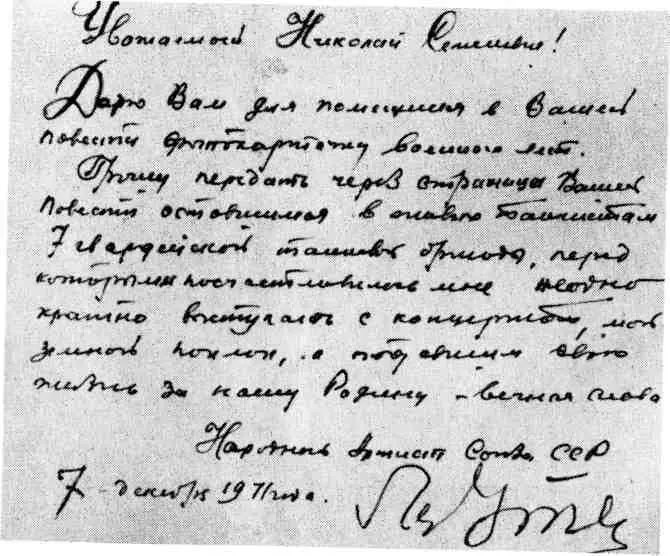 Уважаемый Николай Семенович!
Дарю Вам для помещения в Вашей
повести фотокарточку военных лет.
Прошу передать через страницы Вашей
повести оставшимся в живых танкистам
7 гвардейской танковой бригады, перед
которыми посчастливилось мне неодно
кратно выступать с концертами, мой
земной поклон, а отдавшим свою
жизнь за нашу Родину – вечная слава
Народный Артист Союза ССР
7 декабря 1971 года.